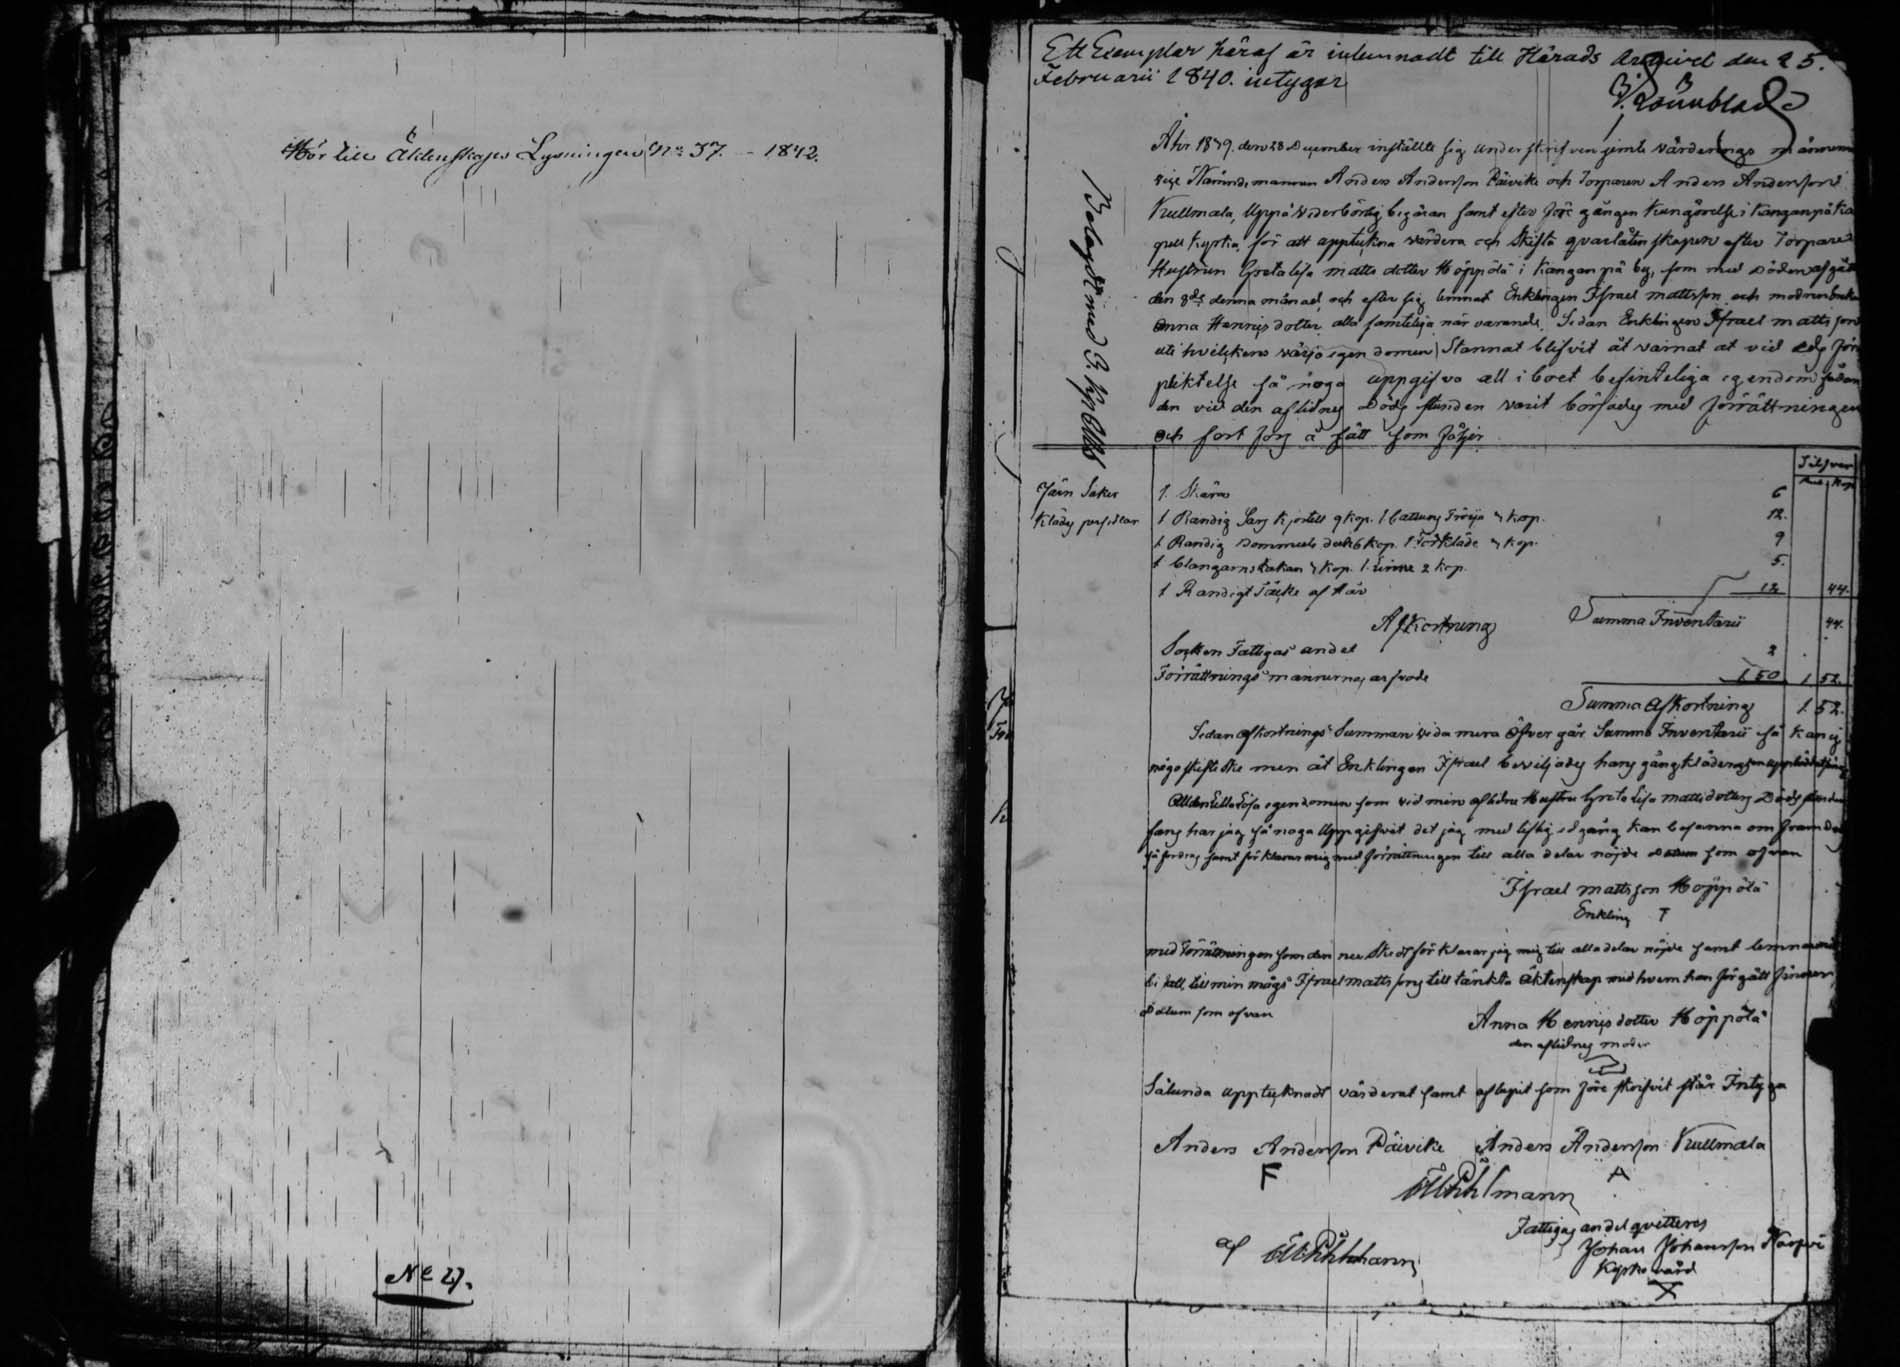 Hör till Äktenskaps Lysningen No 37. - 1842.
No 27.
Ett Exemplar häraf är inlemnadt till Härads Archivet den 25.
Februarii 1840. intygar
Rönnblad
Åhr 1839. den 28 December instälte sig underskrifven jemte värderings männerna
Nämndemannen Anders Andersson Päivike och Torparen Anders Andersson
Kullmala, Uppå vederbörlig begäran samt efter före gången kungörelse i Kanganpä Ka
pell kyrka, för att upptekna värdera och skifta qvarlåtenskapen efter Torpare
Hustrun Greta Lisa Matts dotter Höppölä i Kanganpä by, som med Döden afgåt
den 8de denna månad, och efter sig lemnat Enklingen Israel Mattsson och modren Enkan
Anna Hennisdotter alla samteliga närvarande. Sedan Enklingen Israel Mattsson
uti hvilkens värjo egendomen Stannat blifvit åtvarnat at vid edz för
pliktelse så noga uppgifva all i boet befinteliga egendom sådan
den vid den aflidnes Döds stunden varit börjades med förrättningen
och fort fors å sätt som följer.
Silfver
Rub. Kop
Järn Saker 1. Skära 6
Klädes persedlar 1 Randig Sars kjortell 9 kop. 1 Cattuns Tröija 3 kop. 12.
1 Randig Sommuls dito 6 kop. 1 Förkläde 3 kop. 9
1 Blangarns lakan 3 kop. 1. Linne 2 kop. 5.
1 Randigt Täcke af Hår 12 44.
Summa Inventarii 44.
Afkortning
Socken Fattigas andel 2
Förrättnings männernas arfvode 1 50 1 52.
Summa Afkortning 1. 52.
Sedan afkortnings Summan vida mera öfver går Summa Inventarii så kan ej
någo skifte ske men åt Enklingen Israel beviljades hans gångkläder
All den Ello Lösa egendomen som vid min aflidna Hustru Greta Lisa Mattsdotters Döds stunden
fans har jag så noga Uppgifvit det jag med liflig edgång kan besanna om framdeles
så fordras samt förklarar mig med förrättningen till alla delar nöjde Datum som ofvan
Israel Mattsson Höppölä
Enkling
med Förrättningen som den nu skedt förklarar jag mig till alla delar nöjde samt lemnar mit
bifall till min mågs Israel Mattssons till tänkta äktenskap med hvem han för gått finner
Datum som ofvan
Anna Hennisdotter Höppölä
den aflidnes moder
Sålunda upptecknadt värderat samt aflupit som före skrifvit står Intyga
Anders Andersson Päivike Anders Andersson Kullmala
F A
Fattigas andel qvitteras
Johan Johansson
Kyrko vård
X
af
Belagdt med